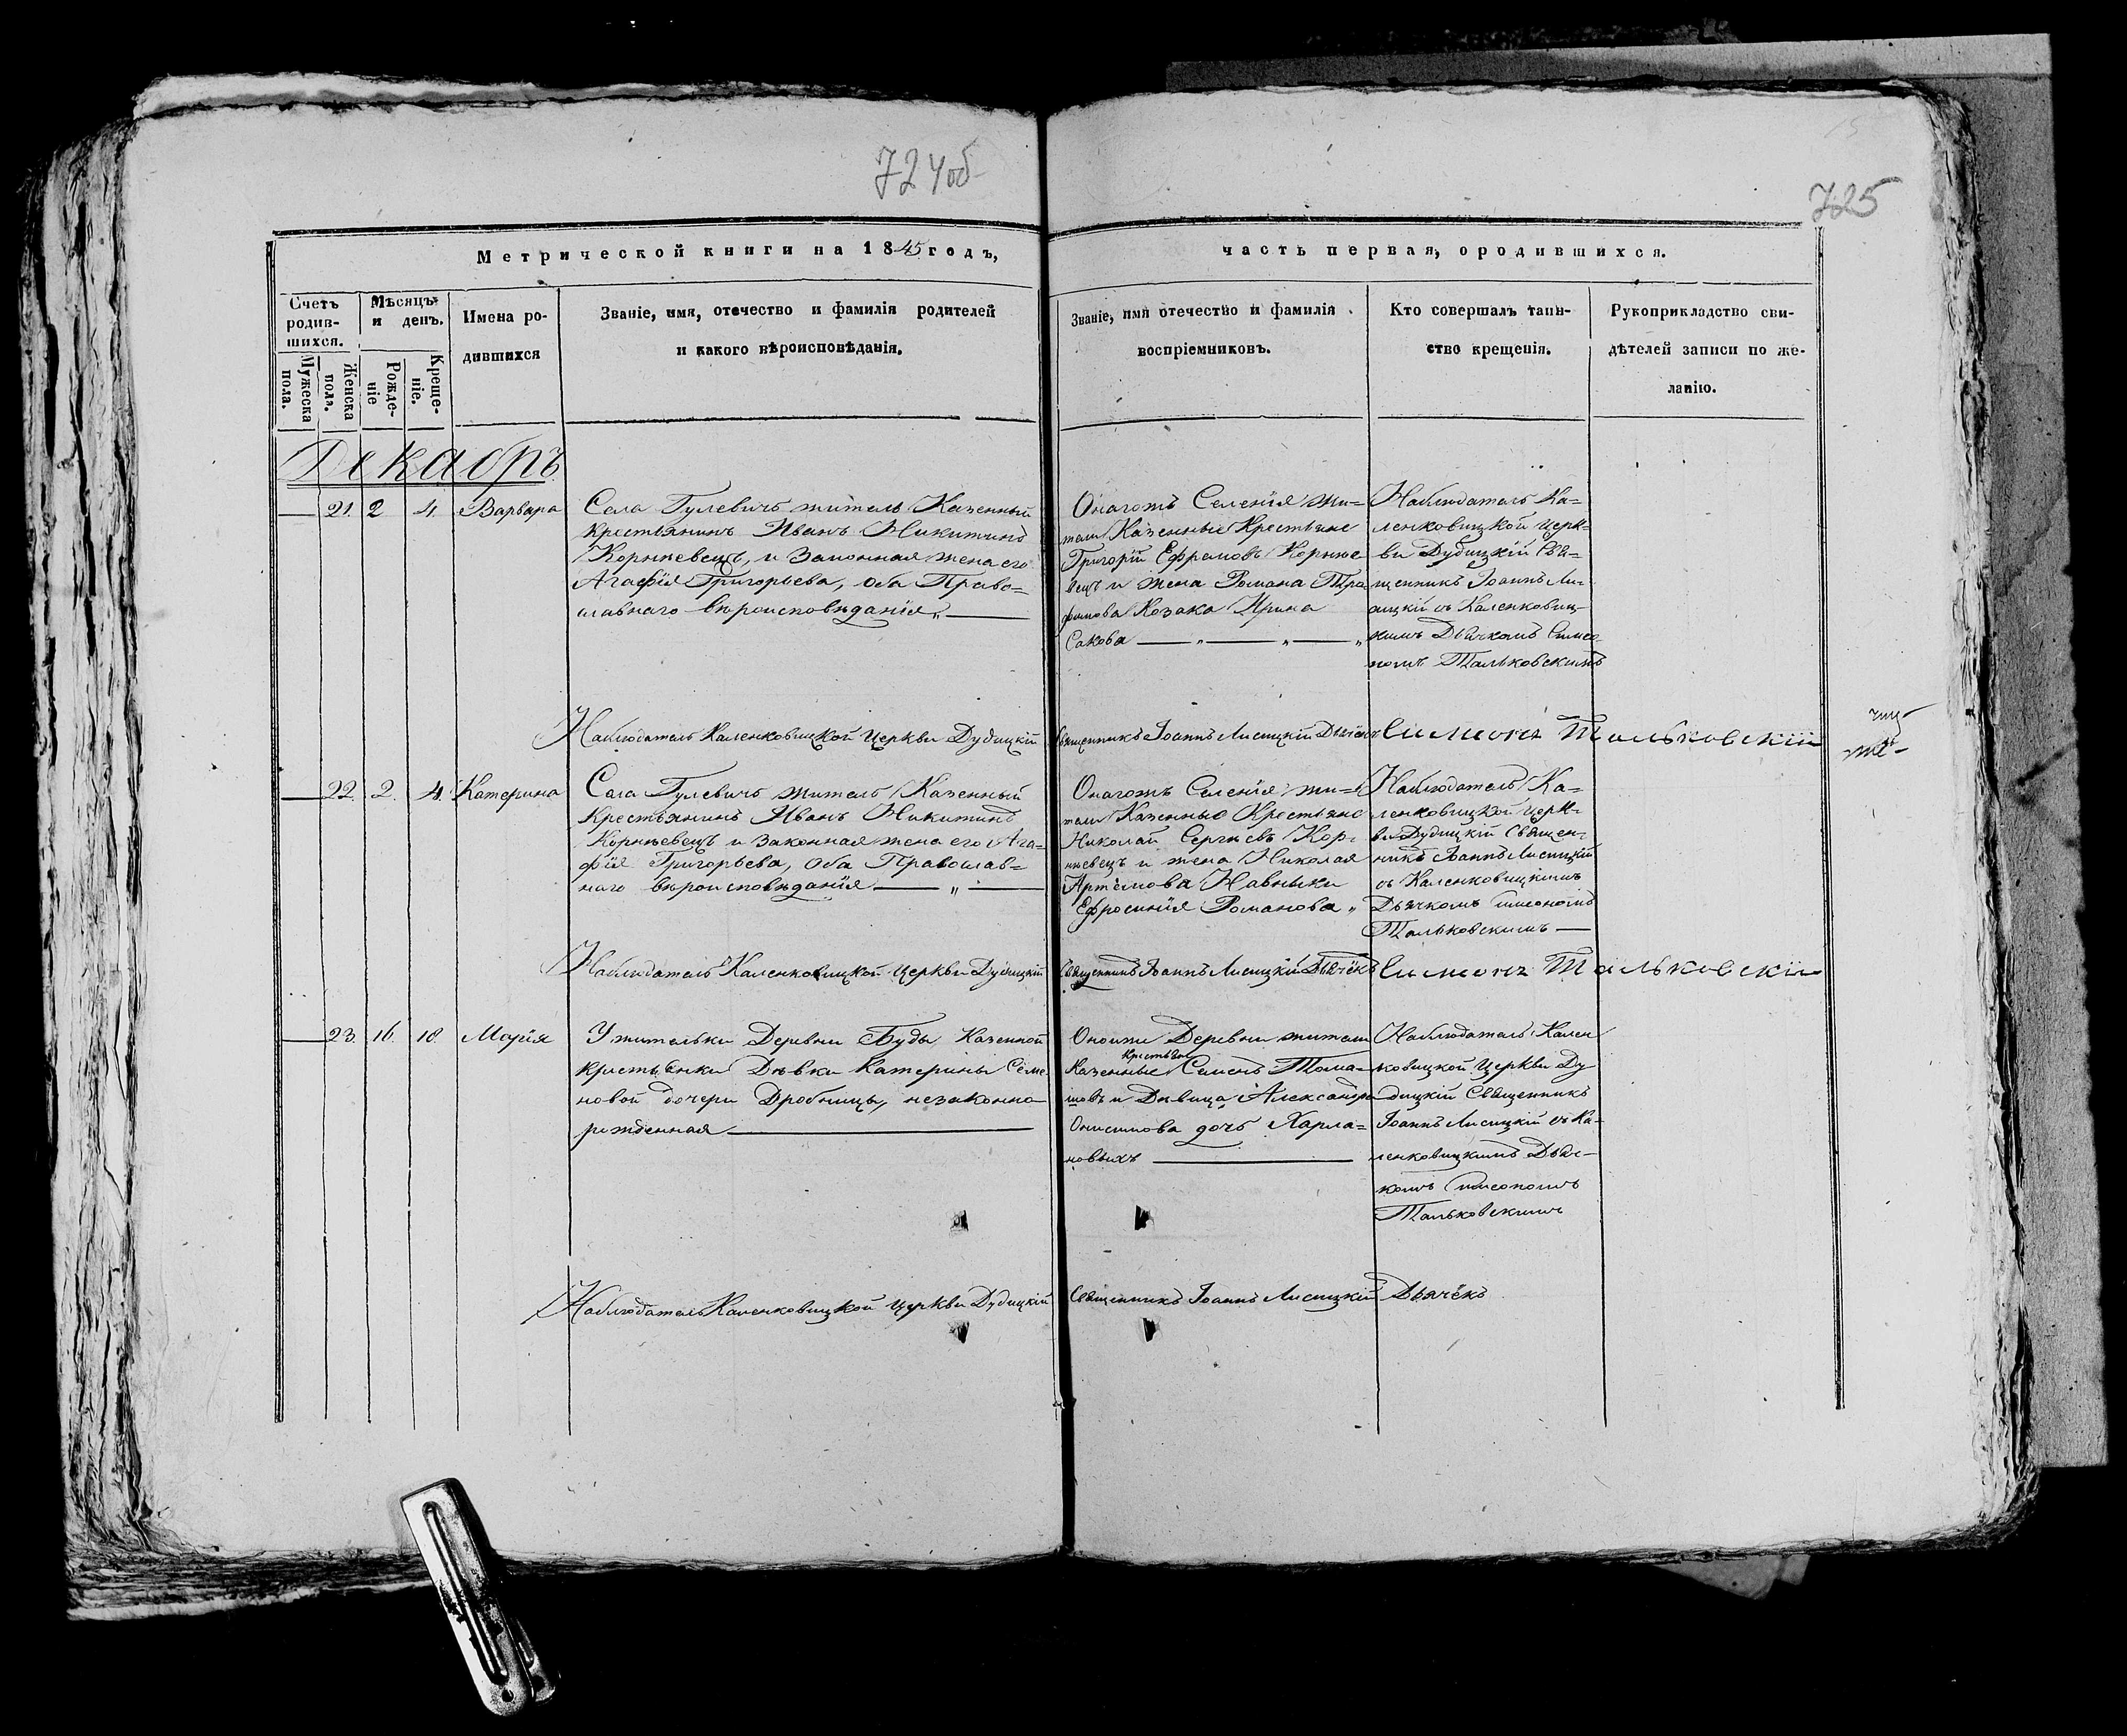 724об
725
Метрической книги на 1845 годъ,
часть первая, ородившихся.
Счетъ родив-шихся.
Мужеска пола.
Женска пола.
Мѣсяцъ и день.
Рожде-ніе
Креще-ніе.
Имена ро-
дившихся
Званіе, имя, отечество и фамилія родителей
и какого вѣроисповѣданія.
Званіе, имя отечество и фамилія
воспріемниковъ.
Кто совершалъ таин-
ство крещенія.
Рукоприкладство сви-
дѣтелей записи по же-
ланію.
Декабрь
21. 2 4. Варвара
Села Гулевичъ житель Казенный
крестьянинъ Иванъ Никитинъ
Корневецъ, и Законная жена его
Агафія Григорьева, оба Право=
славнаго вѣроисповѣданія „
Онагожъ Селенія жи=
тели Казенные Крестьяне
Григорій Ефремовъ Корние
вецъ и жена Романа Тра
фимова Козака Ирина
Сакова „ „ „
Наблюдатель Ка=
ленковицкой церк=
ви Дудицкій Свя=
щенникъ Іоаннъ Ли=
сицкій съ Каленковиц-
кимъ Дьячкомъ Симео-
номъ Тальковскимъ
Наблюдатель Каленковицкой Церкви Дудицкій Священникъ Іоаннъ Лисицкій Дьячёкъ Симеонъ Тальковскій
22. 2. 4. Катерина
Села Гулевичъ житель Казенный
Крестьянинъ Иванъ Никитинъ
Корневецъ и законная жена его Ага=
фія Григорьева, оба Православ=
наго вѣроисповѣданія „
Онагожъ Селенія жи=
тели Казенные Крестьяне
Николай Сергѣевъ Кор-
невецъ и жена Николая
Артёмова Навныки
Ефросинія Романова „
Наблюдатель Ка=
ленковицкой церк=
ви Дудицкій Священ=
никъ Іоаннъ Лисицкій
съ Каленковицкимъ
Дьячкомъ Симеономъ
Тальковскимъ
Наблюдатель Каленковицкой Церкви Дудицкій Священникъ Іоаннъ Лисицкій Дьячёкъ Симеонъ Тальковскій
23. 16. 18. Марія
У жительки Деревни Буды Казенной
крестьянки Дѣвки Катерины Семе
новой дочери Дробницы, незаконно
рожденная
Оноижи Деревни жители
крестьяне
Казенные Семенъ Тома=
шовъ и Дѣвица Александра
Онисимова дочь Харла=
новыхъ
Наблюдатель Кален
ковицкой Церкви Ду
дицкій Священникъ
Іоаннъ Лисицкій съ Ка-
ленковицкимъ Дьяч-
комъ Симеономъ
Тальковскимъ
Наблюдатель Каленковицкой Церкви Дудицкій Священникъ Іоаннъ Лисицкій Дьячёкъ